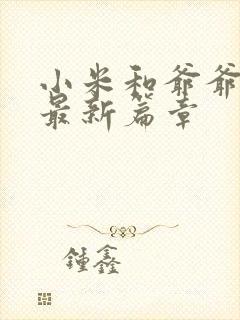 小米和爷爷
最新篇章
鍾鑫